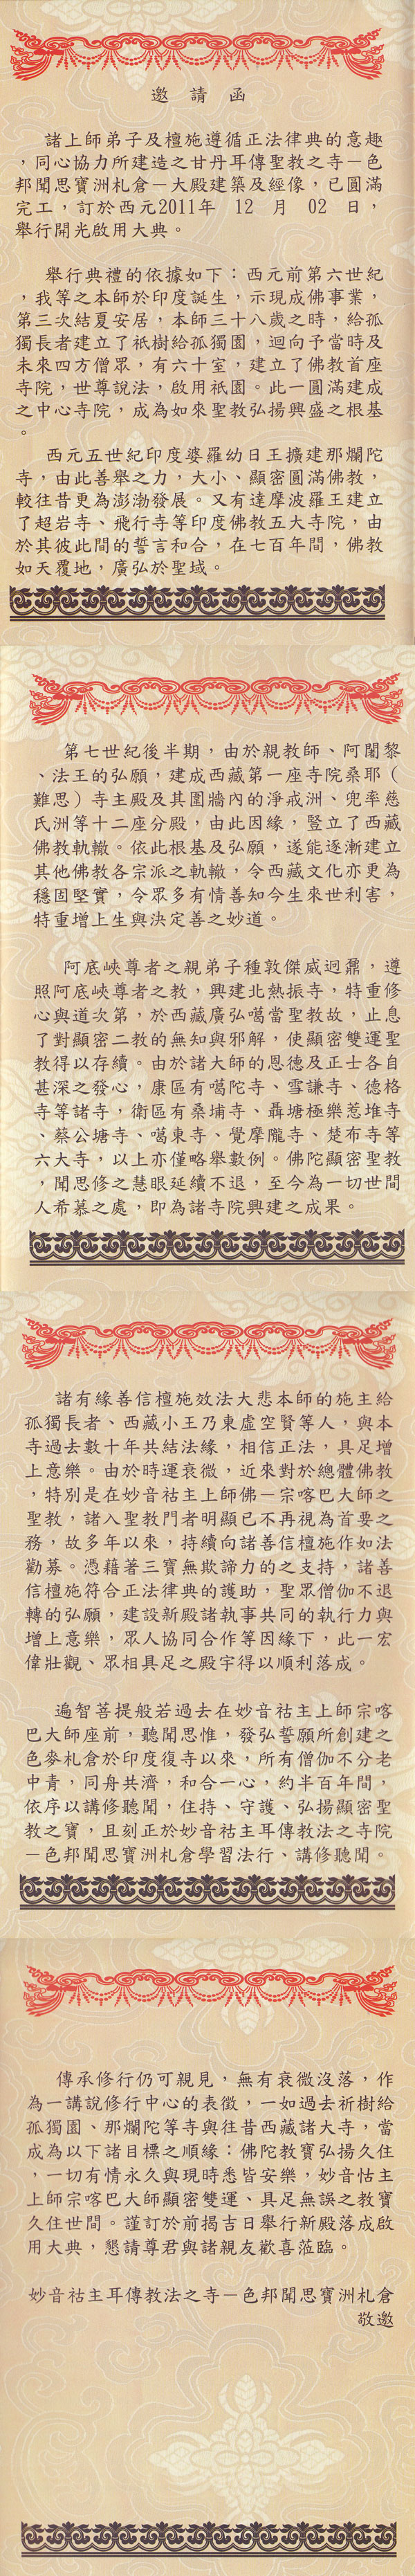 邀請函
諸上師弟子及檀施遵循正法律典的意趣
，同心協力所建造之甘丹耳傳聖教之寺－色
邦聞思寶洲札倉－大殿建築及經像，已圓滿
完工，訂於西元2011年 12 月 02 日，
舉行開光啟用大典。
舉行典禮的依據如下：西元前第六世紀
，我等之本師於印度誕生，示現成佛事業，
第三次結夏安居，本師三十八歲之時，給孤
獨長者建立了祇樹給孤獨園，迴向予當時及
未來四方僧眾，有六十室，建立了佛教首座
寺院，世尊說法，啟用祇園。此一圓滿建成
之中心寺院，成為如來聖教弘揚興盛之根基
。
西元五世紀印度婆羅幼日王擴建那爛陀
寺，由此善舉之力，大小、顯密圓滿佛教，
較往昔更為澎渤發展。又有達摩波羅王建立
了超岩寺、飛行寺等印度佛教五大寺院，由
於其彼此間的誓言和合，在七百年間，佛教
如天覆地，廣弘於聖域。
第七世紀後半期，由於親教師、阿闍黎
、法王的弘願，建成西藏第一座寺院桑耶（
難思）寺主殿及其圍牆內的淨戒洲、兜率慈
氏洲等十二座分殿，由此因緣，豎立了西藏
佛教軌轍。依此根基及弘願，遂能逐漸建立
其他佛教各宗派之軌轍，令西藏文化亦更為
穩固堅實，令眾多有情善知今生來世利害，
特重增上生與決定善之妙道。
阿底峽尊者之親弟子種敦傑威迥鼐，遵
照阿底峽尊者之教，興建北熱振寺，特重修
心與道次第，於西藏廣弘噶當聖教故，止息
了對顯密二教的無知與邪解，使顯密雙運聖
教得以存續。由於諸大師的恩德及正士各自
甚深之發心，康區有噶陀寺、雪謙寺、德格
寺等諸寺，衛區有桑埔寺、聶塘極樂惹堆寺
、蔡公塘寺、噶東寺、覺摩隴寺、楚布寺等
六大寺，以上亦僅略舉數例。佛陀顯密聖教
，聞思修之慧眼延續不退，至今為一切世間
人希慕之處，即為諸寺院興建之成果。
諸有緣善信檀施效法大悲本師的施主給
孤獨長者、西藏小王乃東虛空賢等人，與本
寺過去數十年共結法緣，相信正法，具足增
上意樂。由於時運衰微，近來對於總體佛教
，特別是在妙音祜主上師佛－宗喀巴大師之
聖教，諸入聖教門者明顯已不再視為首要之
務，故多年以來，持續向諸善信檀施作如法
勸募。憑藉著三寶無欺諦力的之支持，諸善
信檀施符合正法律典的護助，聖眾僧伽不退
轉的弘願，建設新殿諸執事共同的執行力與
增上意樂，眾人協同合作等因緣下，此一宏
偉壯觀、眾相具足之殿宇得以順利落成。
遍智菩提般若過去在妙音祜主上師宗喀
巴大師座前，聽聞思惟，發弘誓願所創建之
色麥札倉於印度復寺以來，所有僧伽不分老
中青，同舟共濟，和合一心，約半百年間，
依序以講修聽聞，住持、守護、弘揚顯密聖
教之寶，且刻正於妙音祜主耳傳教法之寺院
－色邦聞思寶洲札倉學習法行、講修聽聞。
傳承修行仍可親見，無有衰微沒落，作
為一講說修行中心的表徵，一如過去祈樹給
孤獨園、那爛陀等寺與往昔西藏諸大寺，當
成為以下諸目標之順緣：佛陀教寶弘揚久住
，一切有情永久與現時悉皆安樂，妙音怙主
上師宗喀巴大師顯密雙運、具足無誤之教寶
久住世間。謹訂於前揭吉日舉行新殿落成啟
用大典，懇請尊君與諸親友歡喜蒞臨。
妙音祜主耳傳教法之寺－色邦聞思寶洲札倉
敬邀